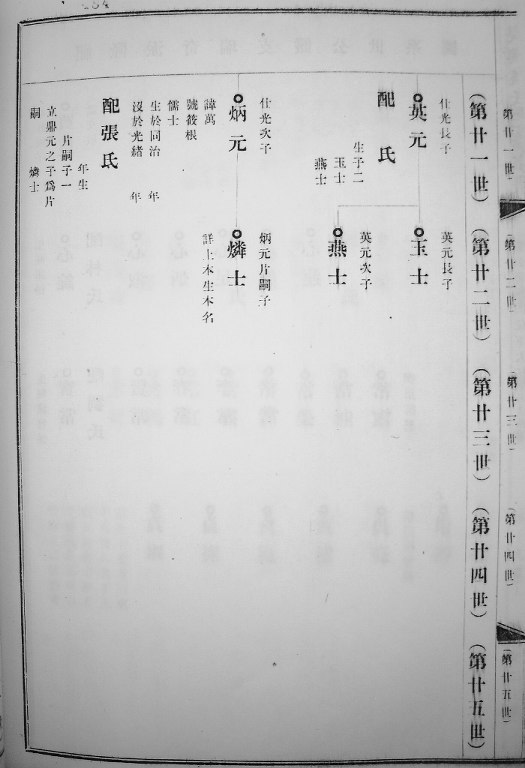 (第廿一世)
(第廿二世)
(第廿三世)
(第廿四世)
(第廿五世)
(第廿一世)
(第廿二世)
(第廿三世)
(第廿四世)
(第廿五世)
仕光長子
英元
配 氏
生子二
玉士
燕士
英元長子
玉士
英元次子
燕士
仕光次子
炳元
諱萬
號筱根
儒士
生於同治 年
沒於光緒 年
配張氏
年生
片嗣子一
立鼎元之子爲片
嗣 燐士
炳元片嗣子
燐士
詳上本生本名